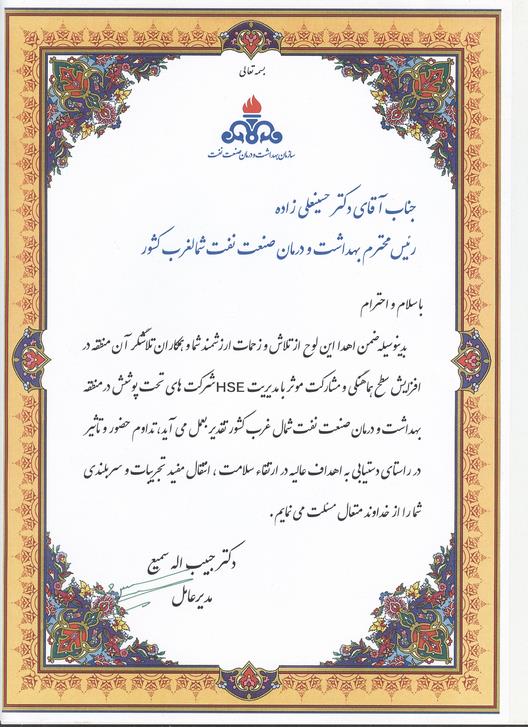 بسمه تعالی
سازمان بهداشت و درمان صنعت نفت
جناب آقای دکتر حسینعلی زاده
رئیس محترم بهداشت و درمان صنعت نفت شمالغرب کشور
با سلام و احترام
بدینوسیله ضمن اهدا این لوح از تلاش و زحمات ارزشمند شما و همکاران تلاشگر آن منطقه در
افزایش سطح هماهنگی و مشارکت موثر با مدیریت HSE شرکت های تحت پوشش در منطقه
بهداشت و درمان صنعت نفت شمال غرب کشور تقدیر بعمل می آید، تداوم حضور و تاثیر
در راستای دستیابی به اهداف عالیه در ارتقاء سلامت ، انتقال مفید تجربیات و سربلندی
شما را از خداوند متعال مسئلت می نمایم .
دکتر حبیب اله سمیع
مدیرعامل